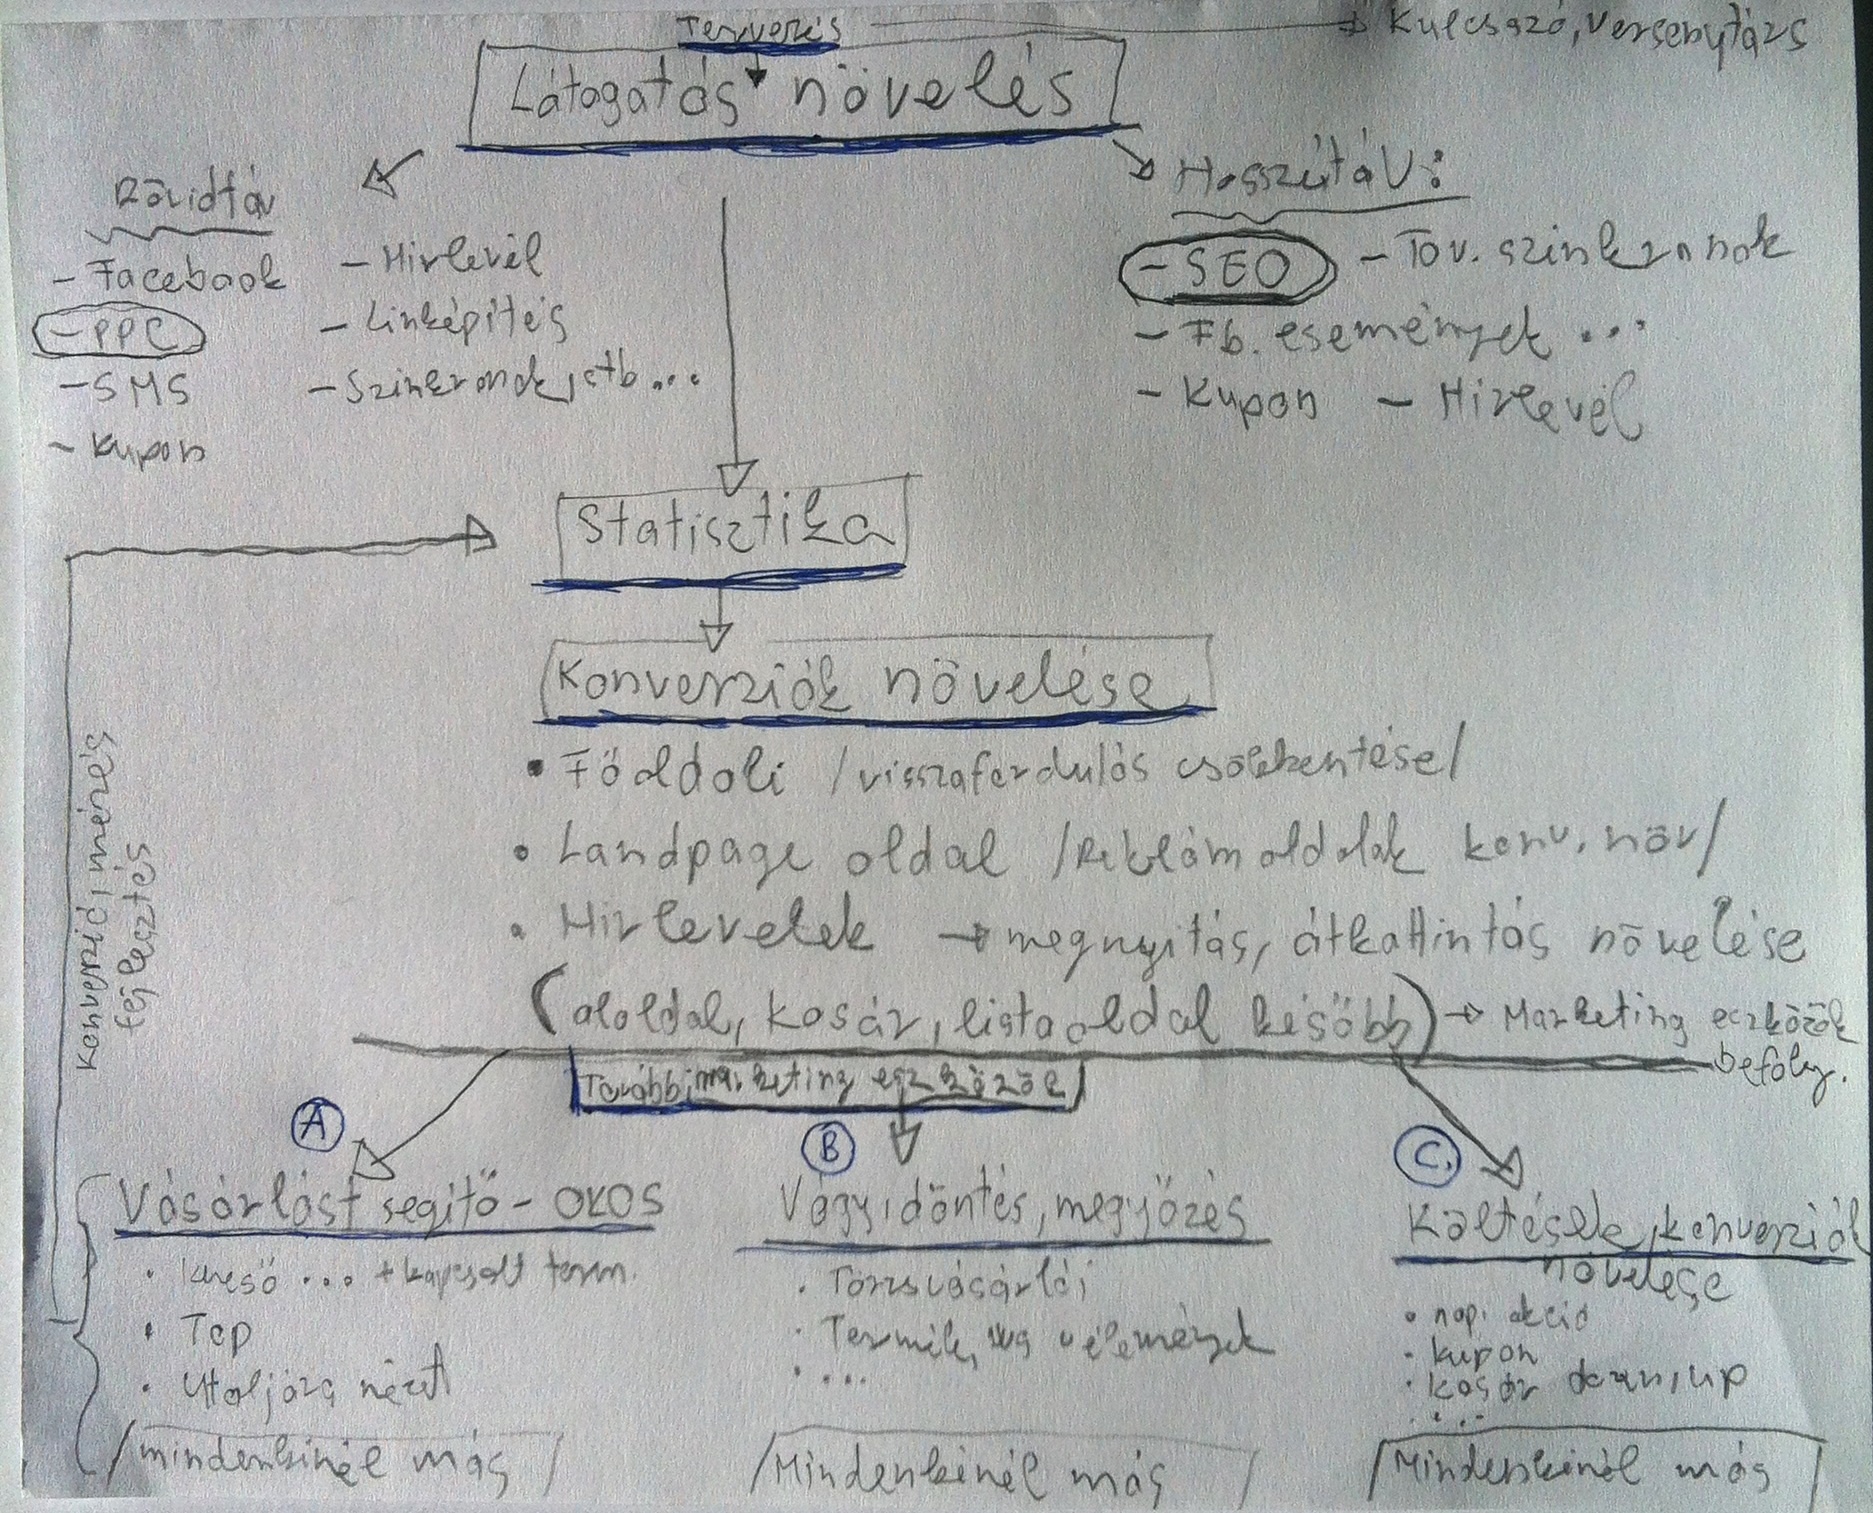 Tervezés
Kulcsszó, versenytárs
Látogatás növelés
Rövidtáv
- Facebook
- PPC
- SMS
- Kupon
- Hirlevél
- Linképítés
- Szinkronok, stb...
Hosszútáv:
- SEO - Tov. szinkronok
- Fb. események ...
- Kupon - Hirlevél
Statisztika
Konverziók növelése
• Főoldali /visszafordulás csökkentése/
• Landpage oldal /Reklám oldalak konv. növ/
• Hirlevelek → megnyitás, átkattintás növelése
(aloldal, kosár, listaoldal később) → Marketing eszközök
befoly.
További marketing eszközök
Konverzió, mérés
fejlesztés
A
Vásárlást segítő - OKOS
• kereső ... + kapcsolt term.
• Top
• Utoljára nézett
/mindenkinél más/
B
Vágy, döntés, megyőzés
• Törzsvásárlói
• Termék, vélemények
• ...
/Mindenkinél más/
C.
Költések, konverziók
növelése
• napi akció
• kupon
• kosár down, up
• ...
/Mindenkinél más/